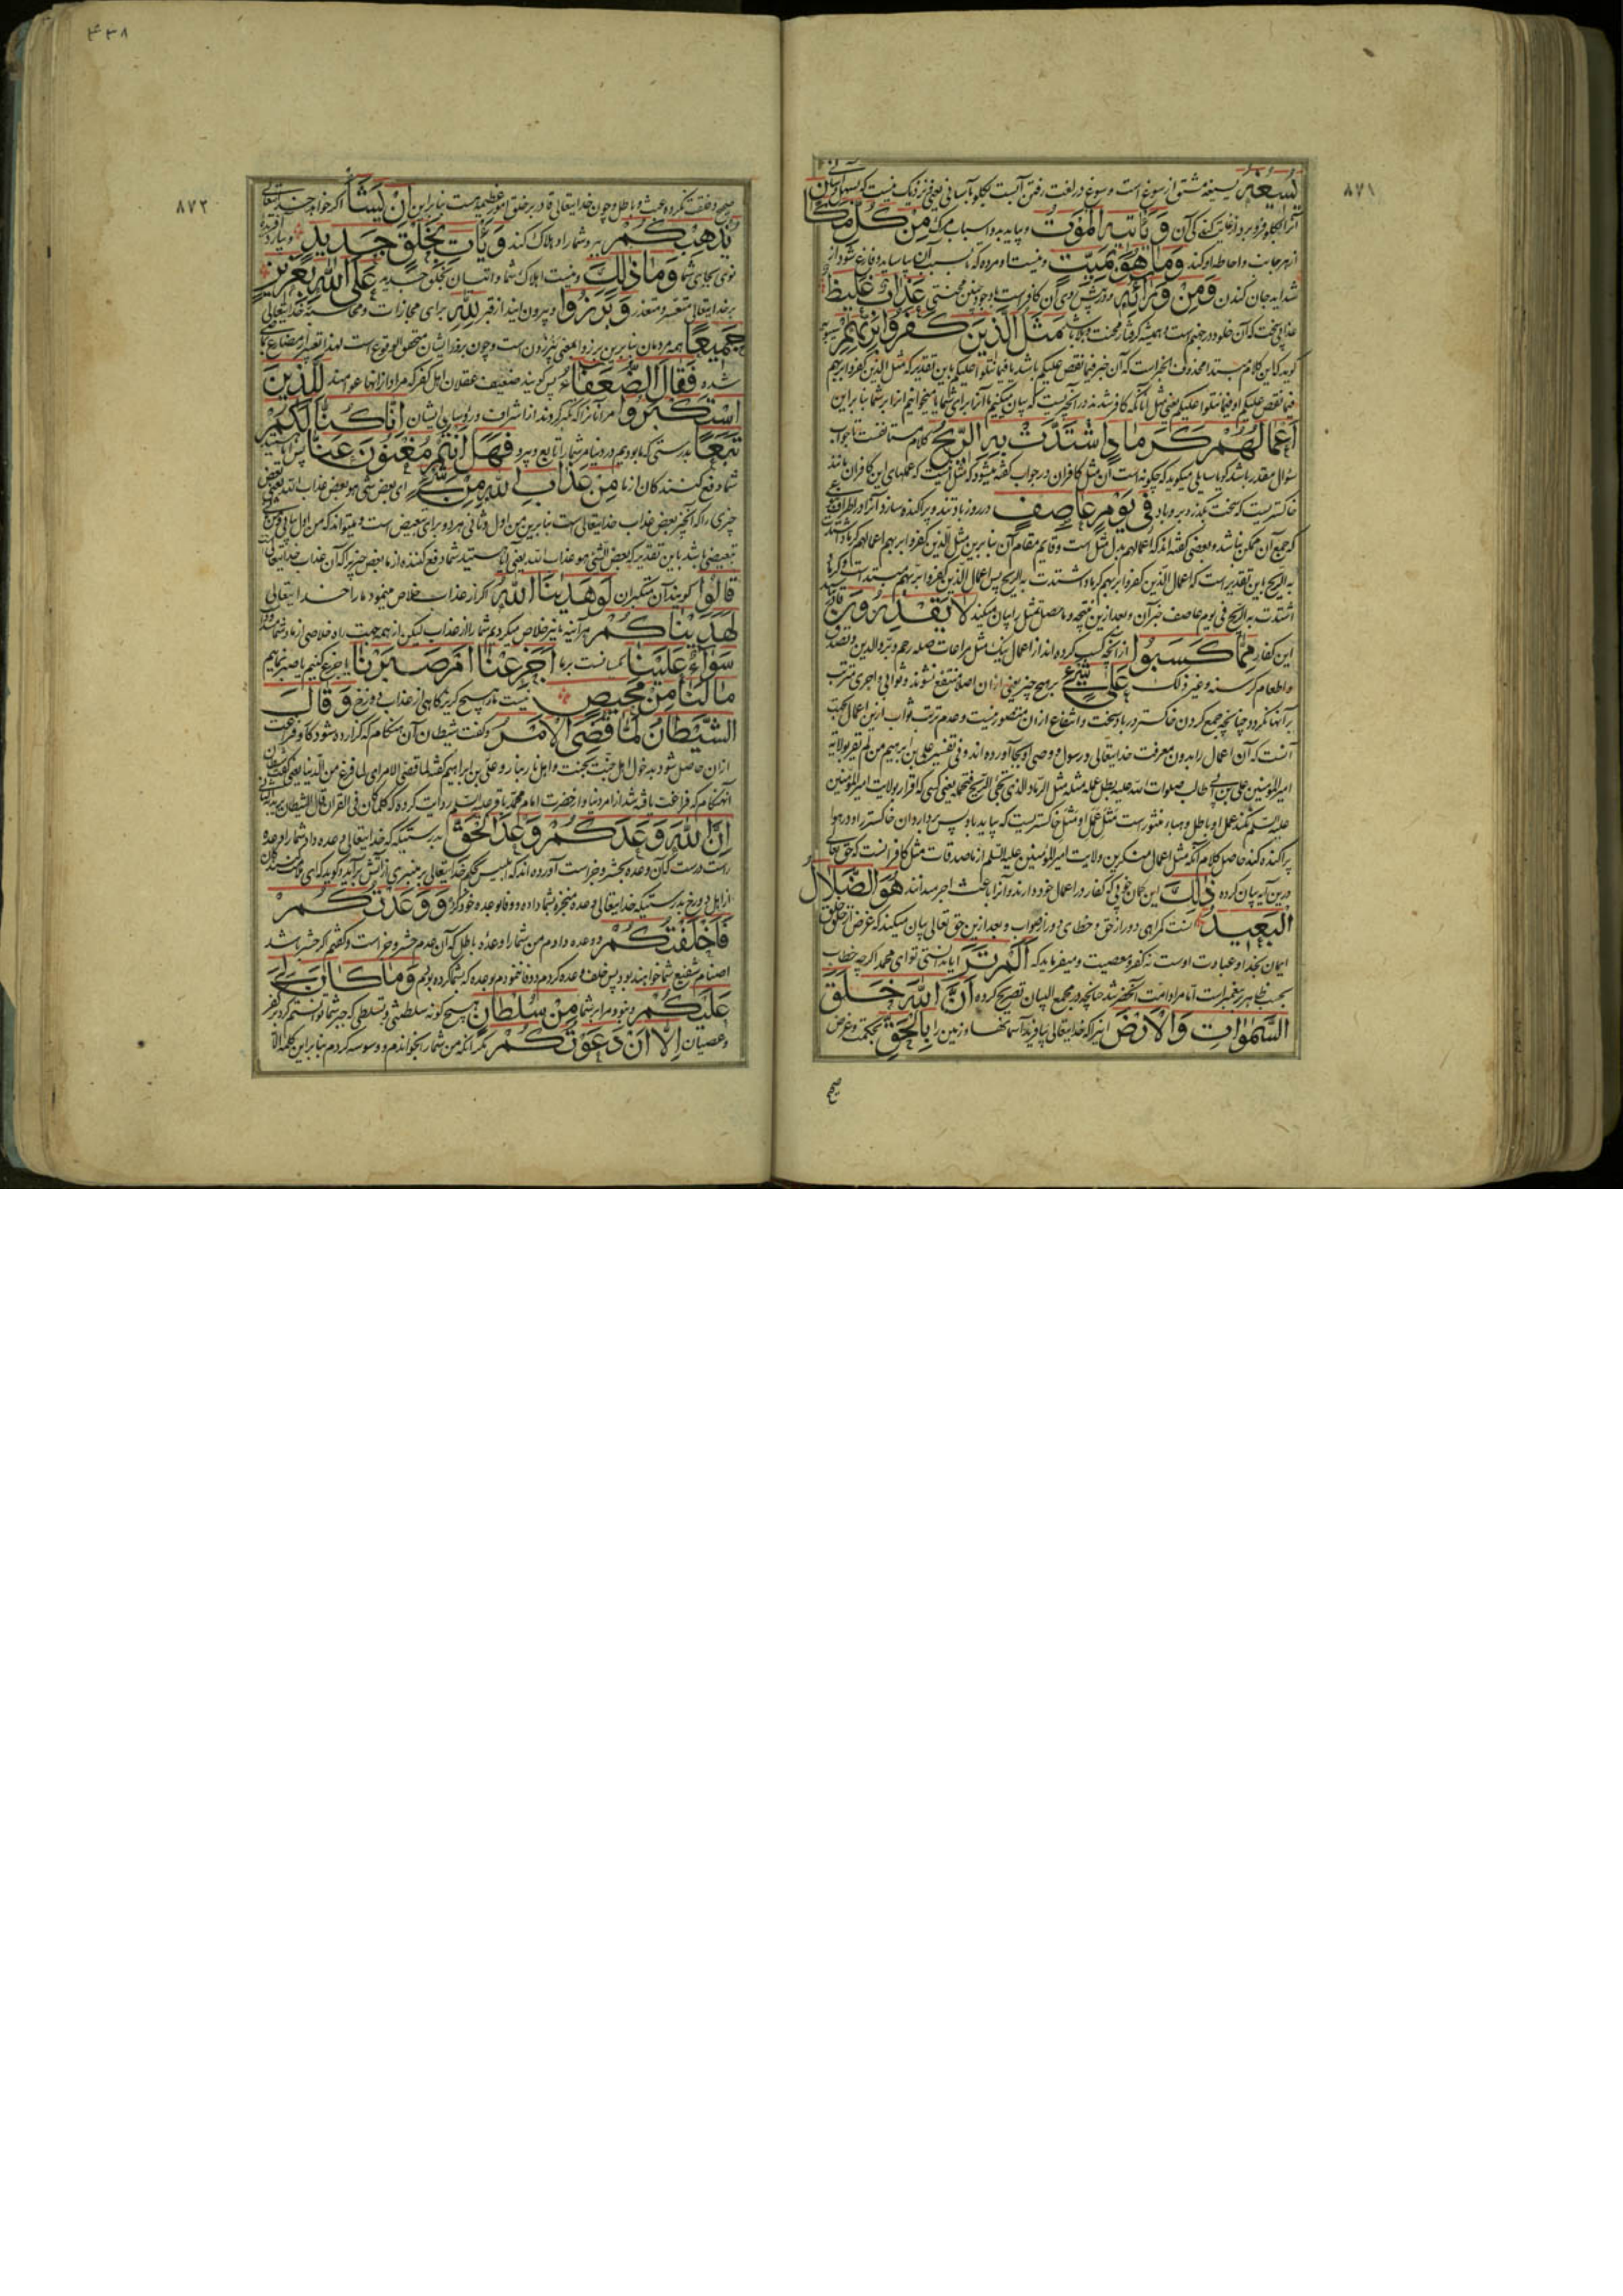 ۸۷۱
یسیغه مشتق از سوغ است و سوغ در لغت رفتن آبست بگلو بآسانی یعنی نزدیک نیست که بسهل و آسانی
آنرا بگلو فرو برد از غایت کندگی آن وَيَأْتِيهِ الْمَوْتُ و بیاید بدو اسباب مرگ مِنْ كُلِّ مَكَانٍ
از هر جانب و احاطه او کند وَمَا هُوَ بِمَيِّتٍ و نیست او مرده که تا بسبب آن بیاساید و فارغ شود از
شداید جان کندن وَمِنْ وَرَائِهِ و در پیش روی آن کافر است با وجود چنین محنتی عَذَابٌ غَلِيظٌ
عذابی سخت که آن خلود در جهنم است و همیشه گرفتار محنت و بلا باشد مَثَلُ الَّذِينَ كَفَرُوا بِرَبِّهِمْ
گوید که این کلام مبتدا محذوف الخبر است که آن خبر فیما نقص علیکم باشد یا فیما نتلوا علیکم باین تقدیر که مثل الذین کفروا بربهم
فیما نقص علیکم او فیما نتلوا علیکم یعنی مثل آنانکه کافر شدند در آنچیزیست که بیان میکنیم ما آنرا برای شما یا میخوانیم آنرا بر شما بنابراین
أَعْمَالُهُمْ كَرَمَادٍ اشْتَدَّتْ بِهِ الرِّيحُ کلام مستأنفست تا جواب
سؤال مقدر باشد گویا سایلی میگوید که چگونه است آن مثل کافران در جواب گفته میشود که مثل اینست که عملهای این کافران مانند
خاکستریست که سخت بگذرد برو باد فِي يَوْمٍ عَاصِفٍ در روز باد تند و پراکنده سازد آنرا در اطراف
که جمع آن ممکن نباشد و بعضی گفته اند که اعمالهم بدل مثل است و قایم مقام آن بنابرین مثل الذین کفروا بربهم اعمالهم کرماد اشتدت
به الریح باین تقدیر است که اعمال الذین کفروا بربهم کرماد اشتدت به الریح پس اعمال الذین کفروا بربهم مبتدا است و کرماد
اشتدت به الریح فی یوم عاصف خبر آن و بعد ازین نتیجه و ماحصل تمثیل را بیان میکند لَا يَقْدِرُونَ قادر نیستند
این کفار مِمَّا كَسَبُوا از آنچه کسب کرده اند از اعمال نیک مثل مراعات صله رحم و بر والدین و تصدق
و اطعام گرسنه و غیر ذلک عَلَى شَيْءٍ بر هیچ چیز یعنی ازان اصلا منتفع نشوند و ثوابی و اجری مترتب
بر آنها نگردد چنانچه جمع کردن خاکستر در باد سخت و انتفاع ازان متصور نیست و عدم ترتب ثواب ازین اعمال بجهت
آنست که آن اعمال را بدون معرفت خدایتعالی و رسول و وصی او بجا آورده اند و فی تفسیر علی بن ابرهیم من لم یقر بولایة
امیرالمؤمنین علی بن ابی طالب صلوات الله علیه بطل عمله مثله مثل الرماد الذی تجئ الریح فتحمله یعنی کسی که اقرار بولایت امیرالمؤمنین
علیه السلم نکند عمل او باطل و هباء منثور است مثل عمل او مثل خاکستریست که بیاید باد پس بردارد ان خاکستر را و در هوا
پراکنده کند حاصل کلام آنکه مثل اعمال منکرین ولایت امیرالمؤمنین علیه السلم از ما صدقات مثل کافرانست که حق تعالی
درین آیه بیان کرده ذَلِكَ این گمان خوبی که کفار در اعمال خود دارند و آنرا باعث اجر میدانند هُوَ الضَّلَالُ
الْبَعِيدُ آنست گمراهی دور از حق و خطای دور از صواب و بعد ازین حق تعالی بیان میکند که غرض از خلق
ایمان بخدا و عبادت اوست نه کفر و معصیت و میفرماید که أَلَمْ تَرَ ایا ندانستی تو ای محمد اگرچه خطاب
بحسب ظاهر پیغمبر است اما مراد امت آنحضرتند چنانچه در مجمع البیان تصریح کرده أَنَّ اللَّهَ خَلَقَ
السَّمَوَاتِ وَالْأَرْضَ اینرا که خدایتعالی بیافرید آسمانها و زمین را بِالْحَقِّ بحکمت و غرض
صحیح
۴۳۸
۸۷۲
صحیح و خلقت نکرده عبث و باطل و چون خدایتعالی قادر بر خلق امور عظیمه است بنابراین إِنْ يَشَأْ اگر خواهد خدایتعالی
يُذْهِبْكُمْ ببرد شما را و هلاک کند وَيَأْتِ بِخَلْقٍ جَدِيدٍ و بیارد آفریده
نوی بجای شما وَمَا ذَلِكَ و نیست اهلاک شما و اتیان بخلق جدید عَلَى اللَّهِ بِعَزِيزٍ
بر خدایتعالی متعسر و متعذر وَبَرَزُوا و بیرون ایند از قبر لِلَّهِ برای مجازات و محاسبه خدایتعالی
جَمِيعًا همه مردمان بنابرین برزوا بمعنی یبرزون است و چون بروز ایشان متحقق الوقوع است لهذا تعبیر از مضارع بماضی
شده فَقَالَ الضُّعَفَاءُ پس گویند ضعیف عقلان اهل کفر که مراد از انها عوامند لِلَّذِينَ
اسْتَكْبَرُوا مر آنانرا که تکبر کردند از اشراف و رؤسای ایشان إِنَّا كُنَّا لَكُمْ
تَبَعًا بدرستی که ما بودیم در دنیا مر شما را تابع و پیرو فَهَلْ أَنْتُمْ مُغْنُونَ عَنَّا پس ایا هستید
شما دفع کنندکان از ما مِنْ عَذَابِ اللَّهِ مِنْ شَيْءٍ ای بعض شئ هو بعض عذاب الله یعنی بعض
چیزی را که آنچیز بعض عذاب خدایتعالی است بنابرین من اول و ثانی هر دو برای تبعیض است و میتواند که من اول بیانی و من ثانی
تبعیضی باشد باین تقدیر که بعض الشئ هو عذاب الله یعنی ایا هستید شما دفع کننده از ما بعض چیزیرا که آن عذاب خدایتعالی است
قَالُوا گویند آن متکبران لَوْ هَدَانَا اللَّهُ اگر از عذاب خلاص مینمود ما را خدایتعالی
لَهَدَيْنَاكُمْ هر آینه ما نیز خلاص میکردیم شما را از عذاب لیکن از همه جهت راه خلاصی از ما و شما مسدود است
سَوَاءٌ عَلَيْنَا یکسانست بر ما أَجَزِعْنَا أَمْ صَبَرْنَا ایا جزع کنیم یا صبر نماییم
مَا لَنَا مِنْ مَحِيصٍ نیست ما را هیچ گریزگاهی از عذاب دوزخ وَقَالَ
الشَّيْطَانُ لَمَّا قُضِيَ الْأَمْرُ و گفت شیطان آن هنگام که گزارده شود کار و فراغت
ازان حاصل شود بدخول اهل جنت بجنت و اهل نار بنار و علی بن ابراهیم گفته لما قضی الامر ای لما فرغ من الدنیا یعنی گفت شیطان
آنهنگام که فراغت یافته شد از امر دنیا و از حضرت امام محمد باقر علیه السلم روایت کرده که کلما کان فی القران قال الشیطان یرید الثانی
إِنَّ اللَّهَ وَعَدَكُمْ وَعْدَ الْحَقِّ بدرستیکه خدایتعالی وعده داد شما را وعده
راست درست که آن وعده بحشر و جزاست آورده اند که ابلیس بحکم خدایتعالی بر منبری از آتش برآید و گوید که ای
از اهل دوزخ بدرستیکه خدایتعالی وعده منجزه بشما داده و وفا بوعده خود کرد وَوَعَدْتُكُمْ
فَأَخْلَفْتُكُمْ و وعده دادم من شما را وعده باطل که آن عدم حشر و جزاست و گفتم که اگر حشر باشد
اصنام شفیع شما خواهند بود پس خلف وعده کردم و وفا ننمودم بوعده که بشما کرده بودم وَمَا كَانَ لِيَ
عَلَيْكُمْ و نبود مرا بر شما مِنْ سُلْطَانٍ هیچ گونه سلطنتی و تسلطی که جبر شما توانستم کرد بکفر
و عصیان إِلَّا أَنْ دَعَوْتُكُمْ مگر آنکه من شما را بخواندم و وسوسه کردم بنابراین کلمه الا